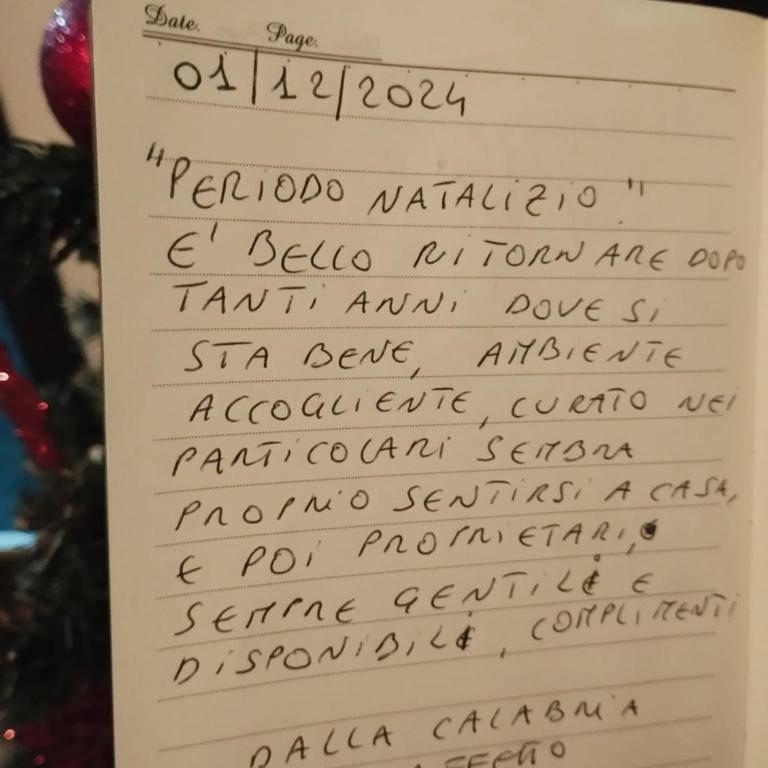 Date. Page.
01/12/2024
"PERIODO NATALIZIO"
E' BELLO RITORNARE DOPO
TANTI ANNI DOVE SI
STA BENE, AMBIENTE
ACCOGLIENTE, CURATO NEI
PARTICOLARI SEMBRA
PROPRIO SENTIRSI A CASA,
E POI PROPRIETARI,
SEMPRE GENTILI E
DISPONIBILI, COMPLIMENTI
DALLA CALABRIA